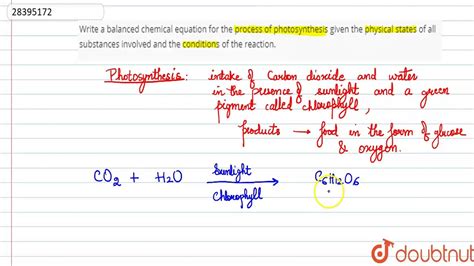 28395172
Write a balanced chemical equation for the process of photosynthesis given the physical states of all
substances involved and the conditions of the reaction.
Photosynthesis: intake of Carbon dioxide and water
in the presence of sunlight and a green
pigment called chlorophyll,
products → food in the form of glucose
& oxygen.
CO2 + H2O Sunlight Chlorophyll → C6H12O6
doubtnut